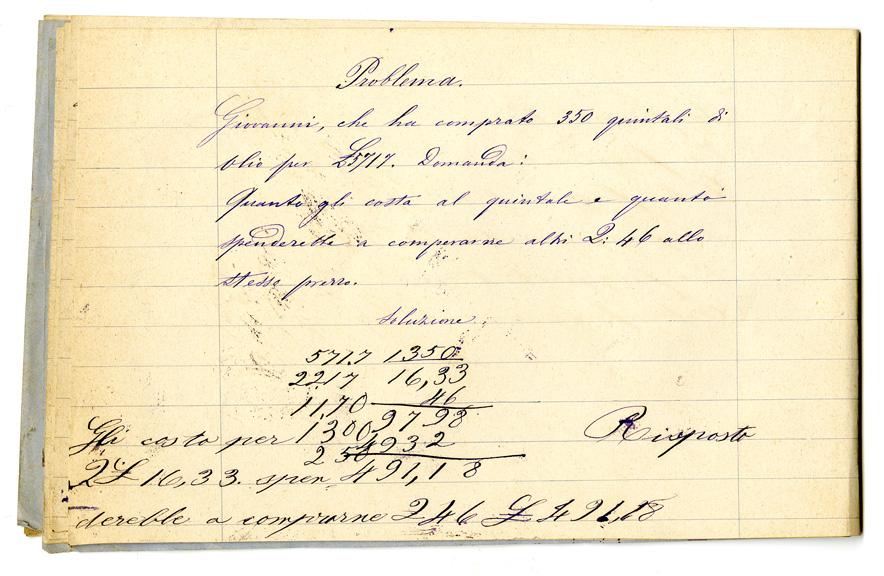 Problema.
Giovanni, che ha comprato 350 quintali di
olio per £5717. Domanda:
Quanto gli costa al quintale e quanto
spenderebbe a comperarne altri Q: 46 allo
stesso prezzo.
Soluzione
5717 | 350
2217 16,33
1170 46
1300 9798
Gli costa per
250 4932
Risposto
Q. £ 16,33. spen 491,18
derebbe a comprarne Q 46 £ 491,18